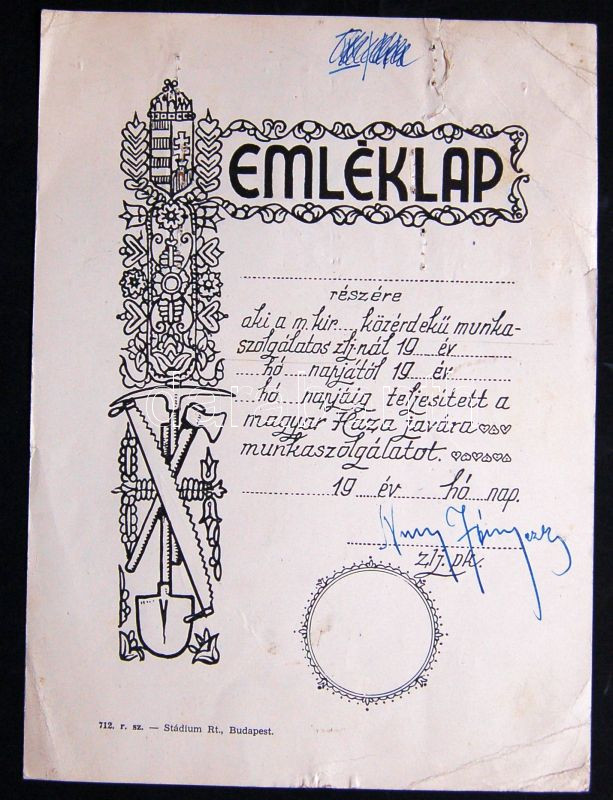 EMLÉKLAP
részére
aki a m. kir.... közérdekű munka-
szolgálatos zlj-nál 19.... év
.... hó.... napjától 19.... év
.... hó.... napjáig teljesített a
magyar Haza javára
munkaszolgálatot.
19.... év.... hó.... nap.
zlj. pk.
712. r. sz. — Stádium Rt., Budapest.